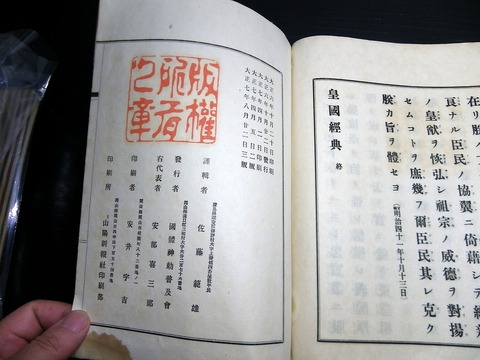 在リ朕ハ
良ナル臣民ノ協翼ニ倚藉シテ
ノ皇猷ヲ恢弘シ祖宗ノ威德ヲ對揚
セムコトヲ庶幾フ爾臣民其レ克ク
朕カ旨ヲ體セヨ（明治四十一年十月十三日）
皇國經典 終
大正六年十月二十日印刷
大正七年四月二日印刷
大正七年四月五日二版
大正七年八月廿二日三版
版權
所有
之章
謹輯者 佐藤範雄
發行者 國體神勅普及會
右代表者 安部喜三郎
印刷者 安井宇吉
印刷所 山陽新報社印刷部